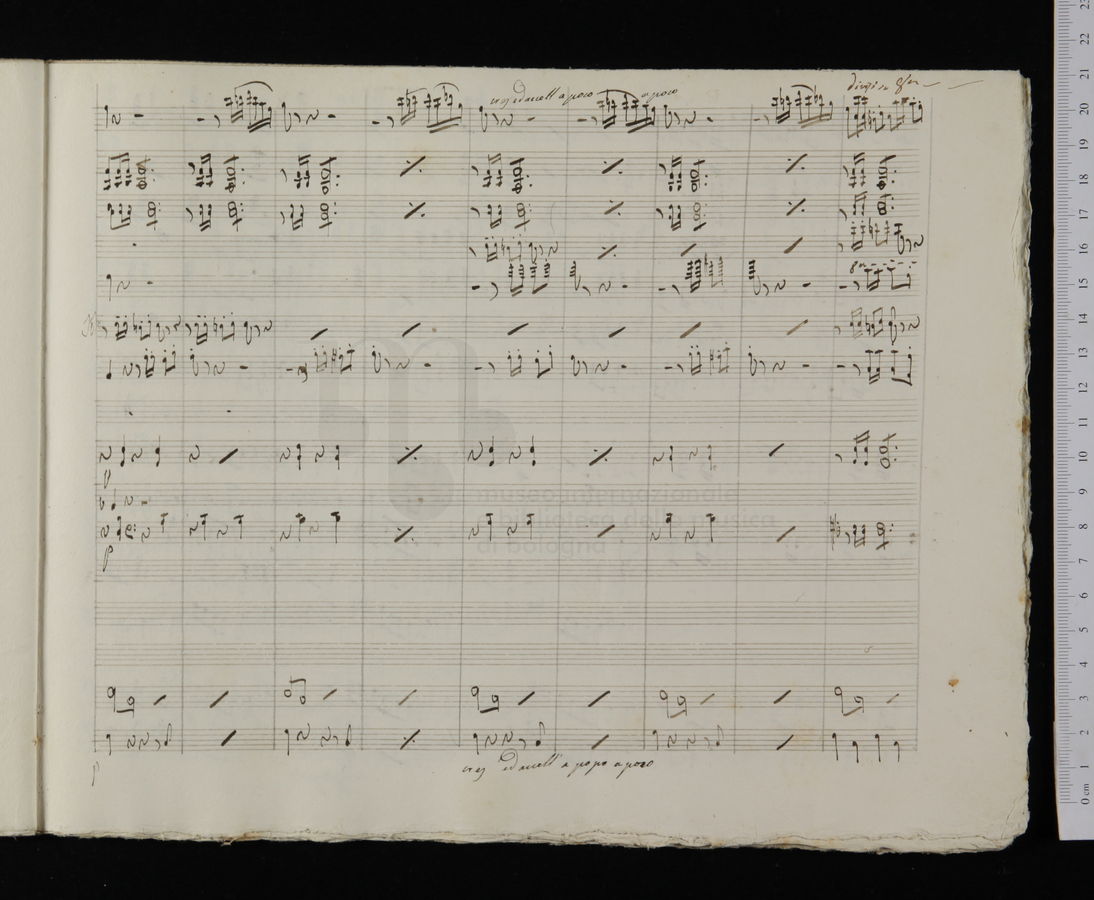 cres ed accell a poco a poco
p
p
museo internazionale
e biblioteca della musica
di bologna
cres ed accell a poco a poco
p
23
22
21
20
19
18
17
16
15
14
13
12
11
10
9
8
7
6
5
4
3
2
1
0 cm